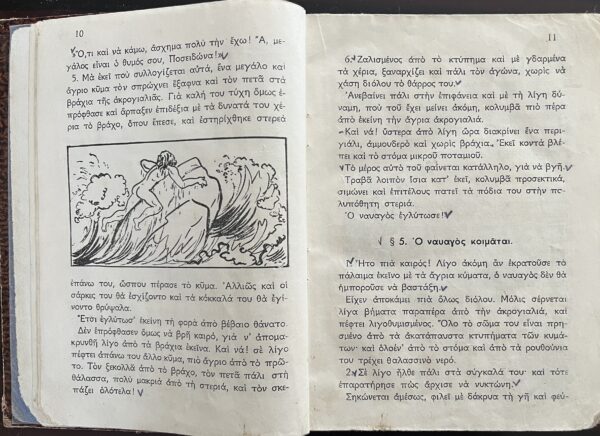 10
«Ὅ,τι καὶ νὰ κάμω, ἄσχημα πολὺ τὴν ἔχω! Ἄ, με-
γάλος εἶναι ὁ θυμός σου, Ποσειδῶνα!»
5. Μὰ ἐκεῖ ποὺ συλλογίζεται αὐτά, ἕνα μεγάλο καὶ
ἄγριο κῦμα τὸν σπρώχνει ἔξαφνα καὶ τὸν πετᾷ στὰ
βράχια τῆς ἀκρογιαλιᾶς. Γιὰ καλή του τύχη ὅμως ἐ-
πρόφθασε καὶ ἅρπαξεν ἐπιδέξια μὲ τὰ δυνατά του χέ-
ρια τὸ βράχο, ὅπου ἔπεσε, καὶ ἐστηρίχθηκε στερεὰ
ἐπάνω του, ὥσπου πέρασε τὸ κῦμα. Ἀλλιῶς καὶ οἱ
σάρκες του θὰ ἐσχίζοντο καὶ τὰ κόκκαλά του θὰ ἐγί-
νοντο θρύψαλα.
Ἔτσι ἐγλύτωσ' ἐκείνη τὴ φορὰ ἀπὸ βέβαιο θάνατο.
Δὲν ἐπρόφθασεν ὅμως νὰ βρῇ καιρό, γιὰ ν' ἀπομα-
κρυνθῇ λίγο ἀπὸ τὰ βράχια ἐκεῖνα. Καὶ νά! σὲ λίγο
πέφτει ἀπάνω του ἄλλο κῦμα, πιὸ ἄγριο ἀπὸ τὸ πρῶ-
το. Τὸν ξεκολλᾷ ἀπὸ τὸ βράχο, τὸν πετᾷ πάλι στὴ
θάλασσα, πολὺ μακριὰ ἀπὸ τὴ στεριά, καὶ τὸν σκε-
πάζει ὁλότελα!
11
6. Ζαλισμένος ἀπὸ τὸ κτύπημα καὶ μὲ γδαρμένα
τὰ χέρια, ξαναρχίζει καὶ πάλι τὸν ἀγώνα, χωρὶς νὰ
χάσῃ διόλου τὸ θάρρος του.
Ἀνεβαίνει πάλι στὴν ἐπιφάνεια καὶ μὲ τὴ λίγη δύ-
ναμη, ποὺ τοῦ ἔχει μείνει ἀκόμη, κολυμβᾷ πιὸ πέρα
ἀπὸ ἐκείνη τὴν ἄγρια ἀκρογιαλιά.
Καὶ νά! ὕστερα ἀπὸ λίγη ὥρα διακρίνει ἕνα περι-
γιάλι, ἀμμουδερὸ καὶ χωρὶς βράχια. Ἐκεῖ κοντὰ βλέ-
πει καὶ τὸ στόμα μικροῦ ποταμιοῦ.
«Τὸ μέρος αὐτὸ τοῦ φαίνεται κατάλληλο, γιὰ νὰ βγῇ.
Τραβᾷ λοιπὸν ἴσια κατ' ἐκεῖ, κολυμβᾷ προσεκτικά,
σιμώνει καὶ ἐπιτέλους πατεῖ τὰ πόδια του στὴν πο-
λυπόθητη στεριά.
Ὁ ναυαγὸς ἐγλύτωσε!
§ 5. Ὁ ναυαγὸς κοιμᾶται.
Ἦτο πιὰ καιρός! Λίγο ἀκόμη ἂν ἐκρατοῦσε τὸ
πάλαιμα ἐκεῖνο μὲ τὰ ἄγρια κύματα, ὁ ναυαγὸς δὲν θὰ
ἠμποροῦσε νὰ βαστάξῃ.
Εἶχεν ἀποκάμει πιὰ ὅλως διόλου. Μόλις σέρνεται
λίγα βήματα παραπέρα ἀπὸ τὴν ἀκρογιαλιά, καὶ
πέφτει λιγοθυμισμένος. Ὅλο τὸ σῶμα του εἶναι πρη-
σμένο ἀπὸ τὰ ἀκατάπαυστα κτυπήματα τῶν κυμά-
των· καὶ ὁλοέν' ἀπὸ τὸ στόμα καὶ ἀπὸ τὰ ρουθούνια
του τρέχει θαλασσινὸ νερό.
2. Σὲ λίγο ἦλθε πάλι στὰ σύγκαλά του· καὶ τότε
ἐπαρατήρησε πὼς ἄρχισε νὰ νυκτώνῃ.
Σηκώνεται ἀμέσως, φιλεῖ μὲ δάκρυα τὴ γῆ καὶ φεύ-